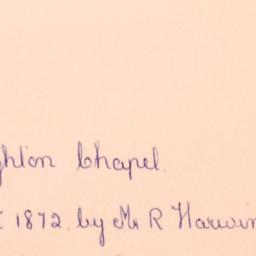 ghton Chapel.
1872. by Mr R Harwin